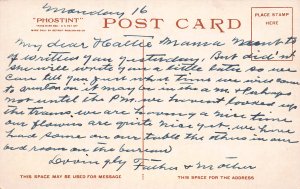 Monday 16
"PHOSTINT"
POST CARD
PLACE STAMP
HERE
My dear Hattie Mama Meant to
if written you yesterday. But did'nt
she will write you a little later so we
can tell you just what time we will come
to station it may be in the a m & Perhaps
not until the P.M. we havent looked up
the trains, we are having a nice time
Our flowers are quite nice yet. we have
had some on our table the others in our
bed room on the bureau
Lovingly Father & Mother
THIS SPACE MAY BE USED FOR MESSAGE
THIS SPACE FOR ADDRESS